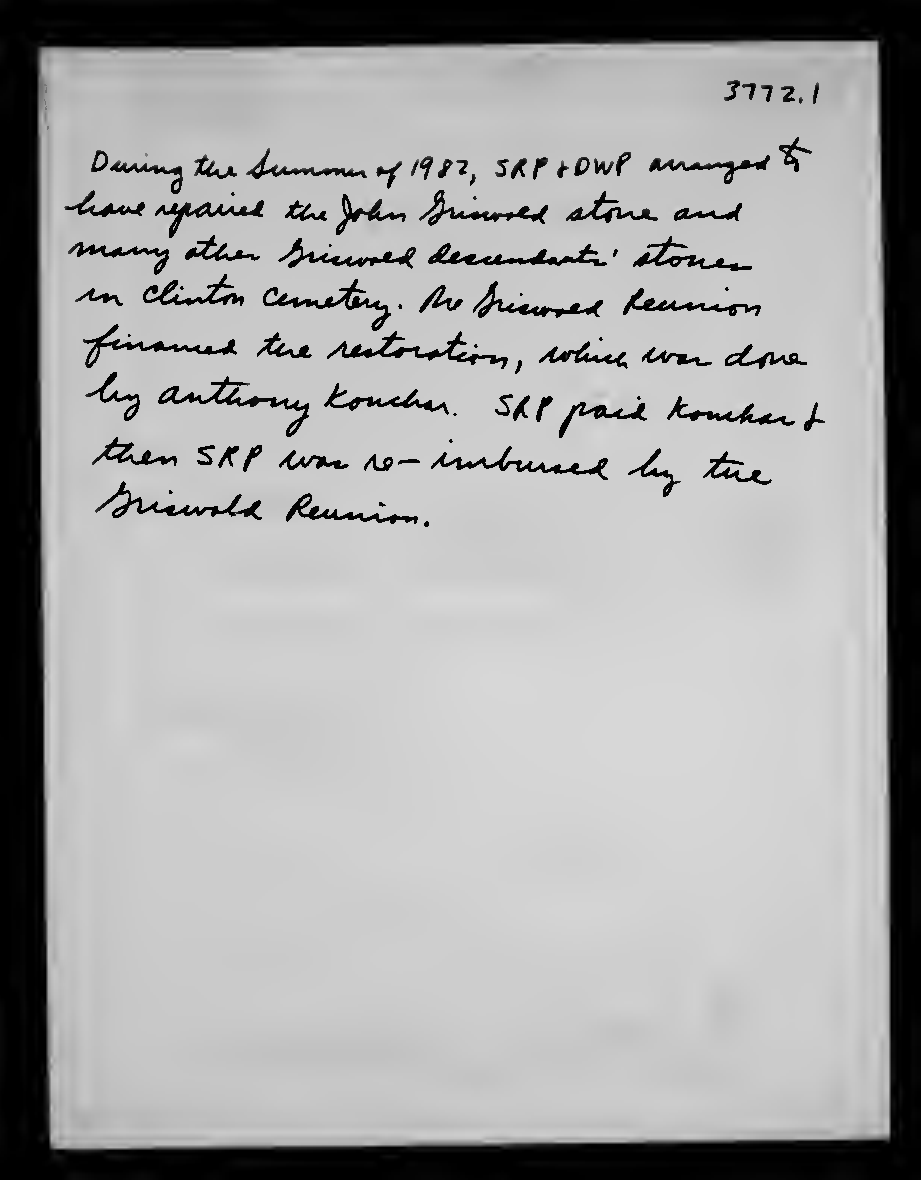 3772.1
During the Summer of 1982, SRP & DWP arranged to
have repaired the John Griswold stone and
many other Griswold descendants' stones
in Clinton Cemetery. The Griswold Reunion
financed the restoration, which was done
by Anthony Konchar. SRP paid Konchar &
then SRP was re-imbursed by the
Griswold Reunion.